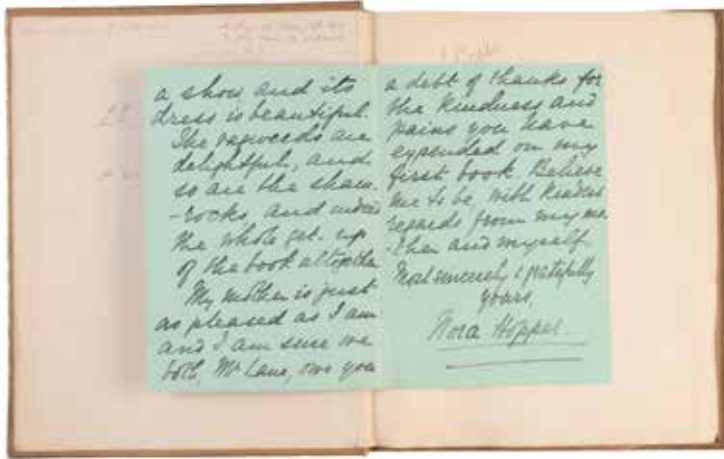 a show and its
dress is beautiful.
The ragweeds are
delightful, and
so are the sham
-rocks, and indeed
the whole get-up
of the book altogether
My mother is just
as pleased as I am
and I am sure we
both, Mr Lane, owe you
a debt of thanks for
the kindness and
pains you have
expended on my
first book. Believe
me to be, with kindest
regards from my mo
-ther and myself
Most sincerely & gratefully
yours,
Nora Hopper